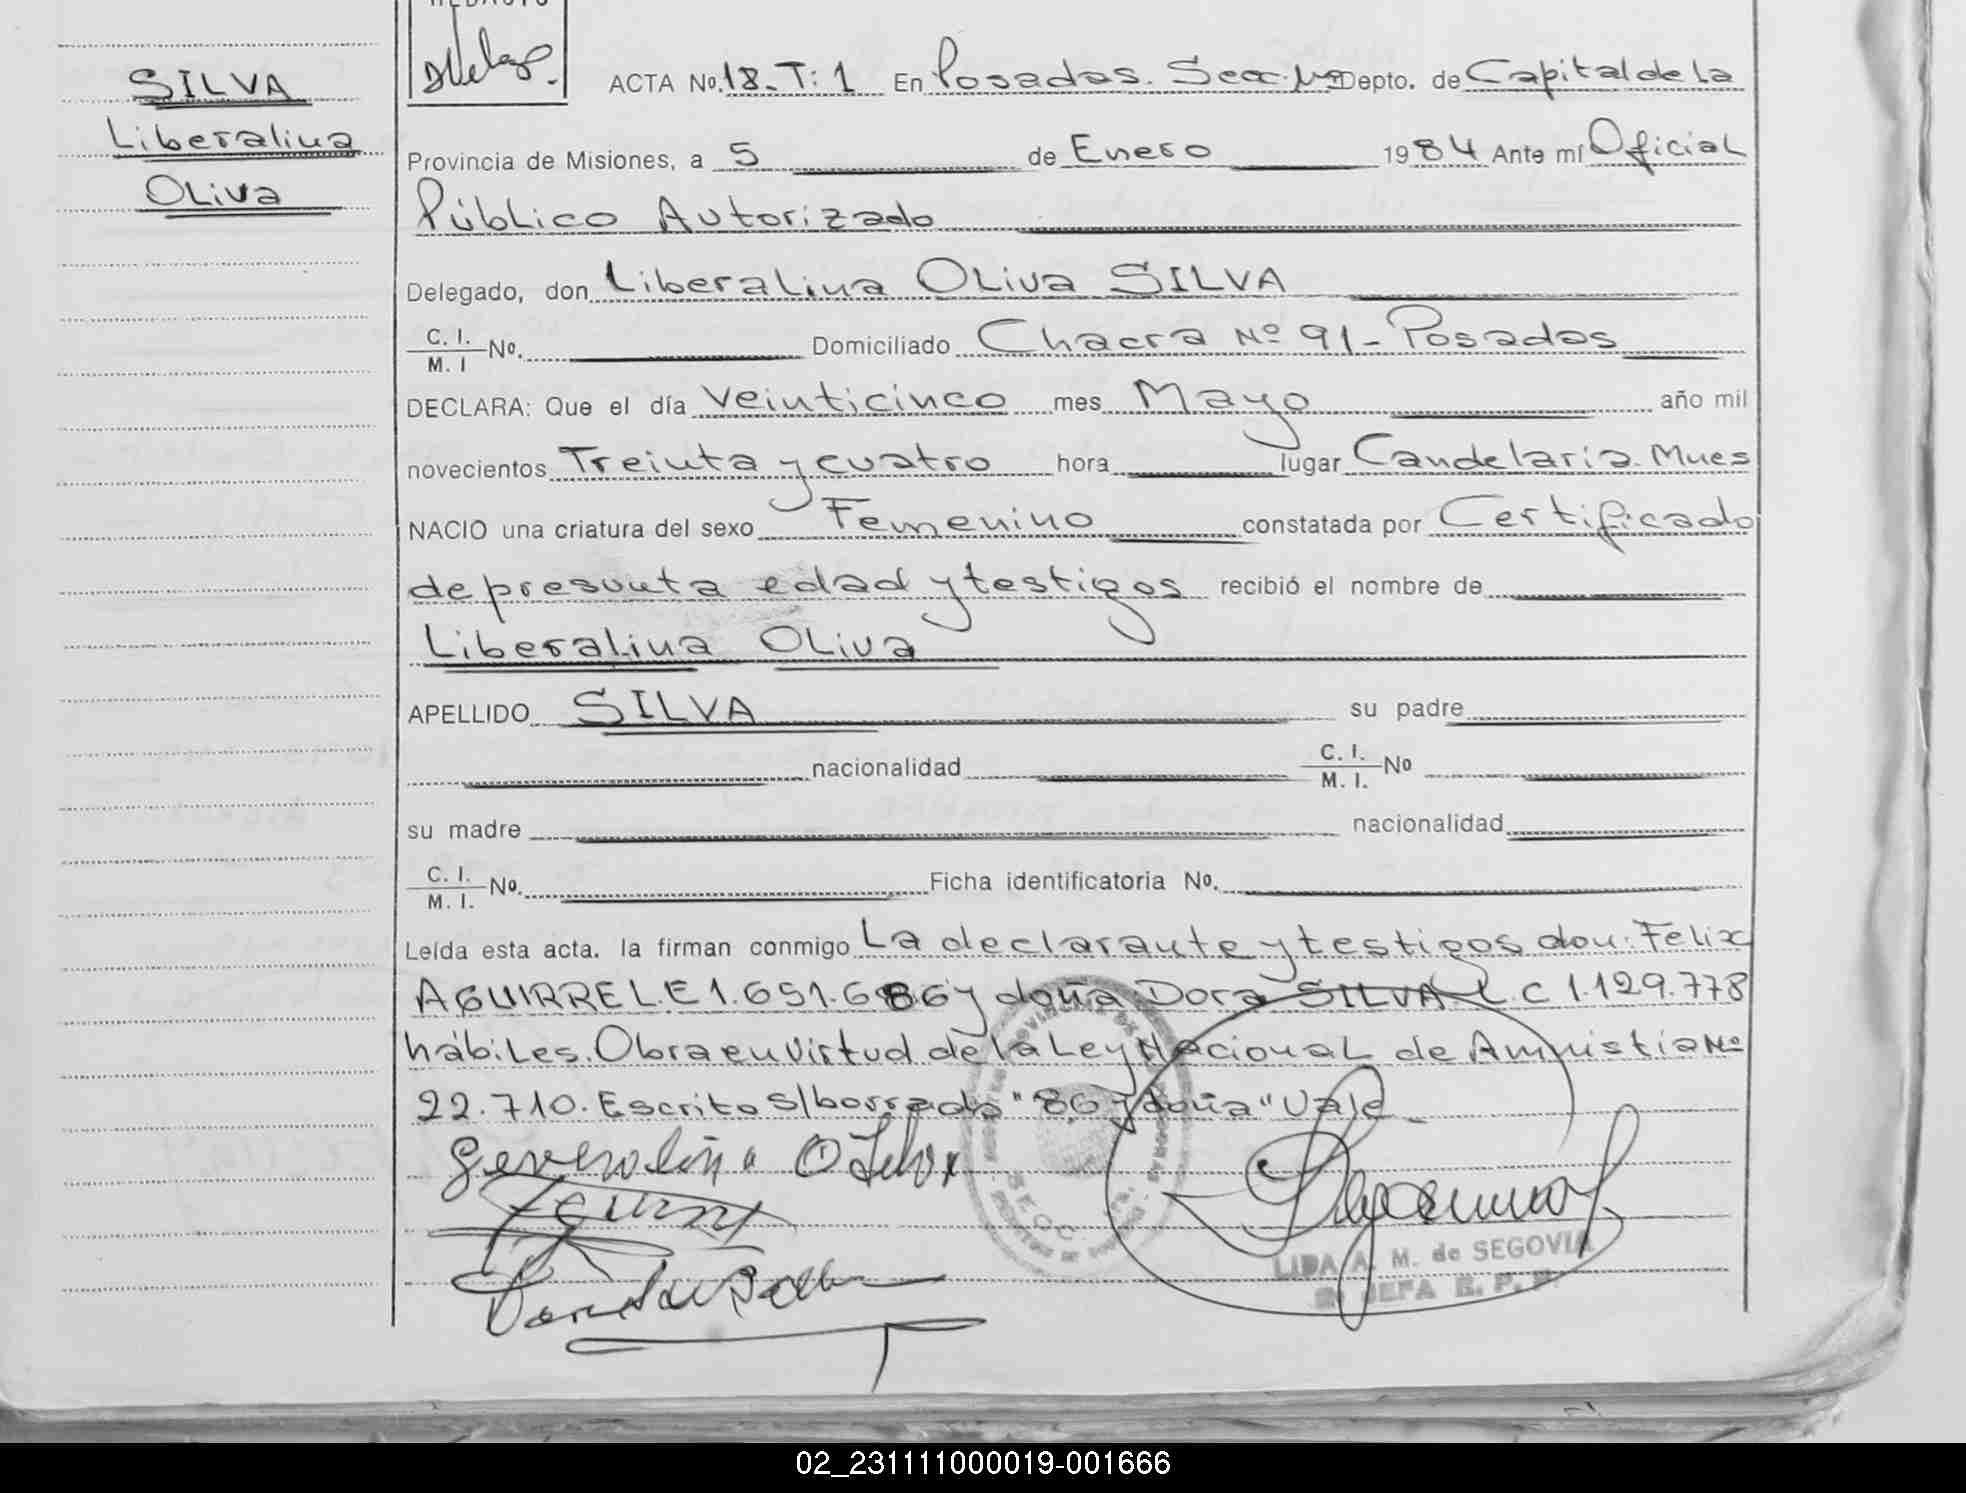 SILVA
Liberalina
Oliva
ACTA No. 18. T: 1 En Posadas. Secc. Depto. de Capital de la
Provincia de Misiones, a 5 de Enero 1984 Ante mí Oficial
Público Autorizado
Delegado, don Liberalina Oliva SILVA
C. I.
M. I No. Domiciliado Chacra Nº 91 - Posadas
DECLARA: Que el día veinticinco mes Mayo año mil
novecientos Treinta y cuatro hora lugar Candelaria. Mnes
NACIO una criatura del sexo Femenino constatada por Certificado
de presunta edad y testigos recibió el nombre de
Liberalina Oliva
APELLIDO SILVA su padre
nacionalidad C. I.
M. I. No
su madre nacionalidad
C. I.
M. I. No. Ficha identificatoria No.
Leída esta acta. la firman conmigo La declarante y testigos don: Felix
AGUIRRE L.E 1.651.686 y doña Dora SILVA L.C 1.129.778
hábiles. Obra en virtud de la Ley Nacional de Amnistia Nº
22.710. Escrito s/borrado "86 y doña" Vale
LIDA A. M. de SEGOVIA
JEFA
02_231111000019-001666